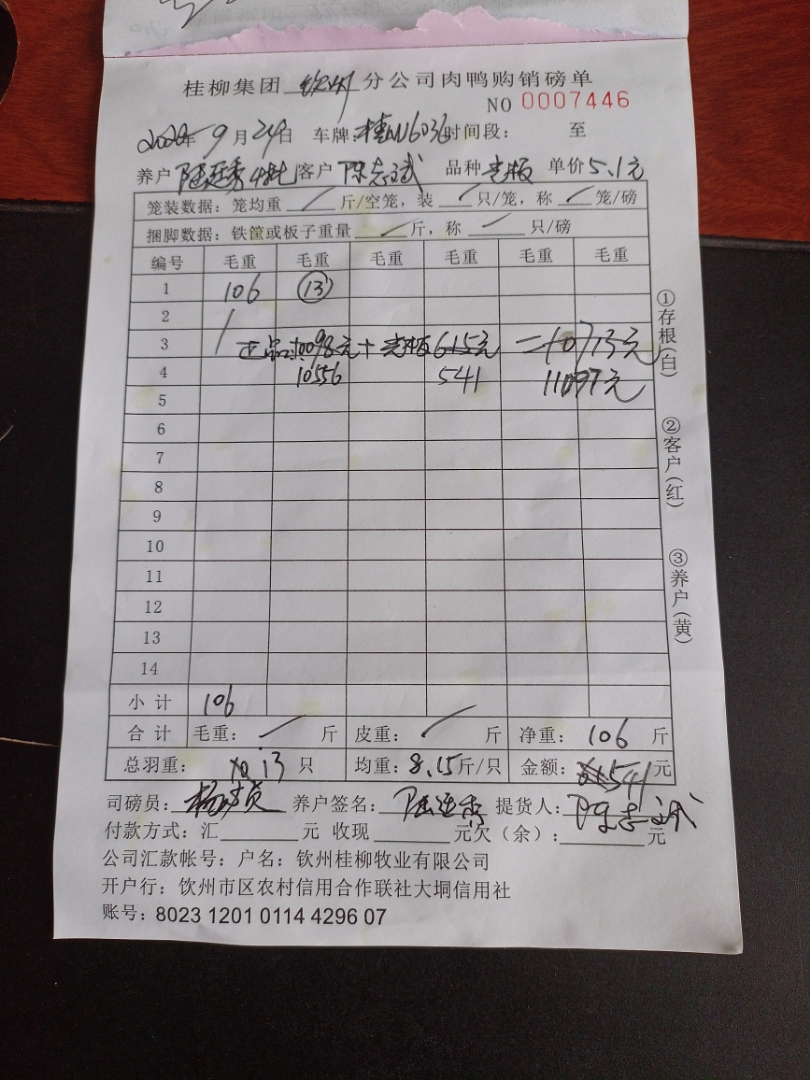 桂柳集团 钦州 分公司肉鸭购销磅单
NO 0007446
9月24日 车牌：桂N 6036 时间段： 至
养户 客户 陈志斌 品种 光板 单价 5.1元
笼装数据：笼均重 斤/空笼，装 只/笼，称 笼/磅
捆脚数据：铁筐或板子重量 斤，称 只/磅
编号 毛重 毛重 毛重 毛重 毛重 毛重
1 106 13
2
3 正品 10098元+光板615元=10713元
4 10556 541 11097元
5
6
7
8
9
10
11
12
13
14
小计 106
合计 毛重： 斤 皮重： 斤 净重：106斤
总羽重： 13 只 均重：8.15斤/只 金额： 541元
司磅员： 养户签名： 提货人：陈志斌
付款方式：汇 元 收现 元欠（余）： 元
公司汇款帐号：户名：钦州桂柳牧业有限公司
开户行：钦州市区农村信用合作联社大垌信用社
账号：8023 1201 0114 4296 07
①存根(白)
②客户(红)
③养户(黄)